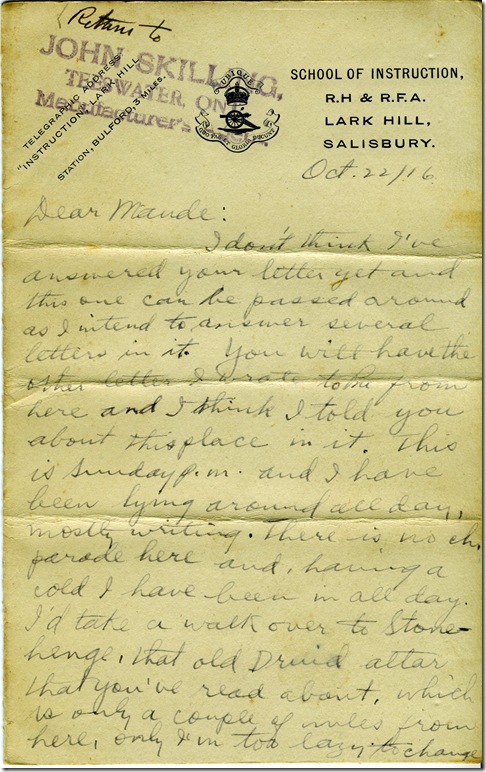 Return to
JOHN SKILLING,
TEESWATER, ONT.
Manufacturer's
TELEGRAPHIC ADDRESS
"INSTRUCTION, LARK HILL
STATION, BULFORD, 3 MILES.
UBIQUE
SCHOOL OF INSTRUCTION,
R.H & R.F.A.
LARK HILL,
SALISBURY.
Oct. 22/16
Dear Maude:
I don't think I've
answered your letter yet and
this one can be passed around
as I intend to answer several
letters in it. You will have the
other letter I wrote to from
here and I think I told you
about this place in it. This
is Sunday p.m. and I have
been lying around all day,
mostly writing. There is no ch.
parade here and, having a
cold I have been in all day.
I'd take a walk over to Stone-
henge, that old Druid altar
that you've read about, which
is only a couple of miles from
here, only I'm too lazy to change